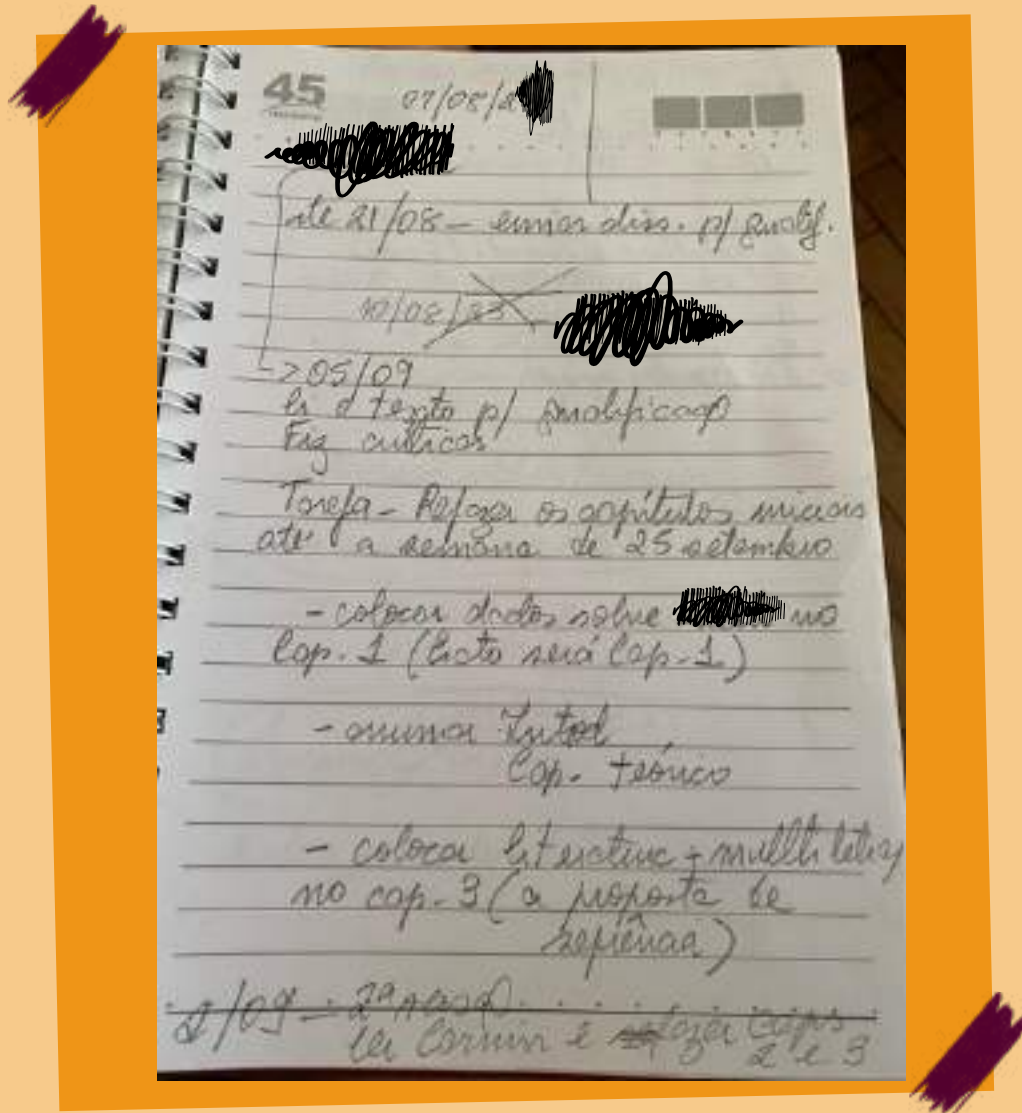 45
07/08/2
até 21/08 - enviar diss. p/ qualif.
10/08/23
> 05/09
li o texto p/ qualificaçã
Fiz críticas
Tarefa - Refazer os capítulos iniciais
até a semana de 25 setembro
- colocar dados sobre no
Cap. 1 (Ecto será Cap. 1)
- arrumar Introd
Cap. teórico
- colocar literatura + multiletr
no cap. 3 (a proposta de
sequência)
2/09 - 2ª
ler e fazer Caps
2 e 3